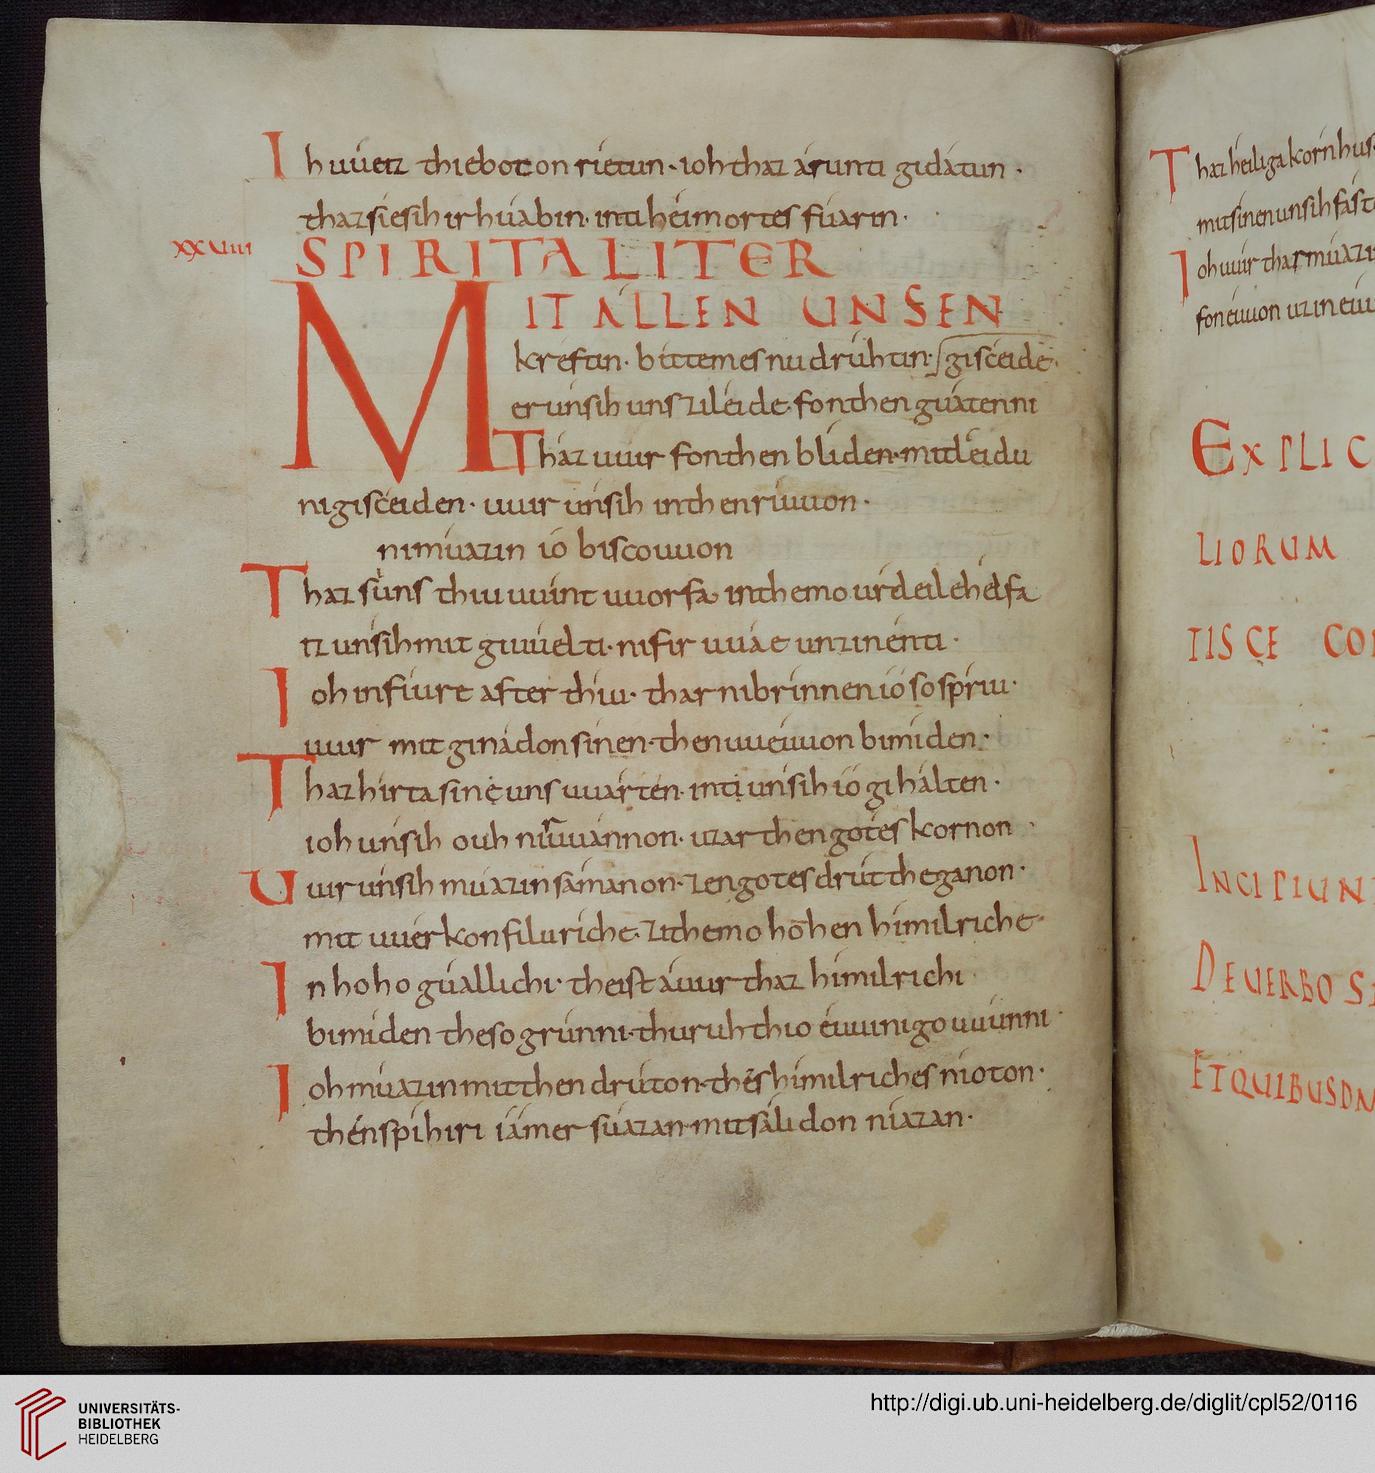 Ih uuetz thie boton rietun · ioh thaz árunti gidátun ·
thaz sie sih irhúabin · inti héimortes fúarin ·
XXVIIII SPIRITALITER
MIT ALLEN UNSEN
kréftin · bittemes nu drúhtin · gisceide ·
er únsih uns zi léide · fon then gúaten ni
Tház uuir fon then blíden · mit léidu
ni gisceiden · uuir únsih in then ríuuon ·
ni múazin ió biscouuon
Thaz súns thiu uuint uuorfa · in themo urdeile hélfa
iz unsih mit giuuélti · ni fir uuáe unz in enti ·
Ioh in fiure after thiu · thar ni brinnen ió so spriu ·
uuir mit ginádon sinen · then uueuuon bimiden ·
Thaz hírta sine uns uuárten · inti únsih io gihálten ·
ioh únsih ouh ni uuánnon · uzar then gótes kornon ·
Uuir únsih múazin sámanon · zen gotes drut theganon ·
mit uuérkon filu riche · zi themo hóhen hímilriche
In hoho gúallichi · theist áuur thaz himilrichi
bimiden theso grúnni · thuruh thio éuuinigo uuúnni ·
Ioh múazin mit then drúton · thes hímilriches níoton ·
thén spíhiri iámer súazan · mit sálidon níazan ·
Thaz héiliga kornhus
mit sinen unsih fast
Ioh uuir thar múazi
fon éuuon uz in eúu
EXPLIC
LIORUM
TIS CE CO
INCIPIUNT
DE UERBO S
ET QUIBUSDA
UNIVERSITÄTS-
BIBLIOTHEK
HEIDELBERG
http://digi.ub.uni-heidelberg.de/diglit/cpl52/0116